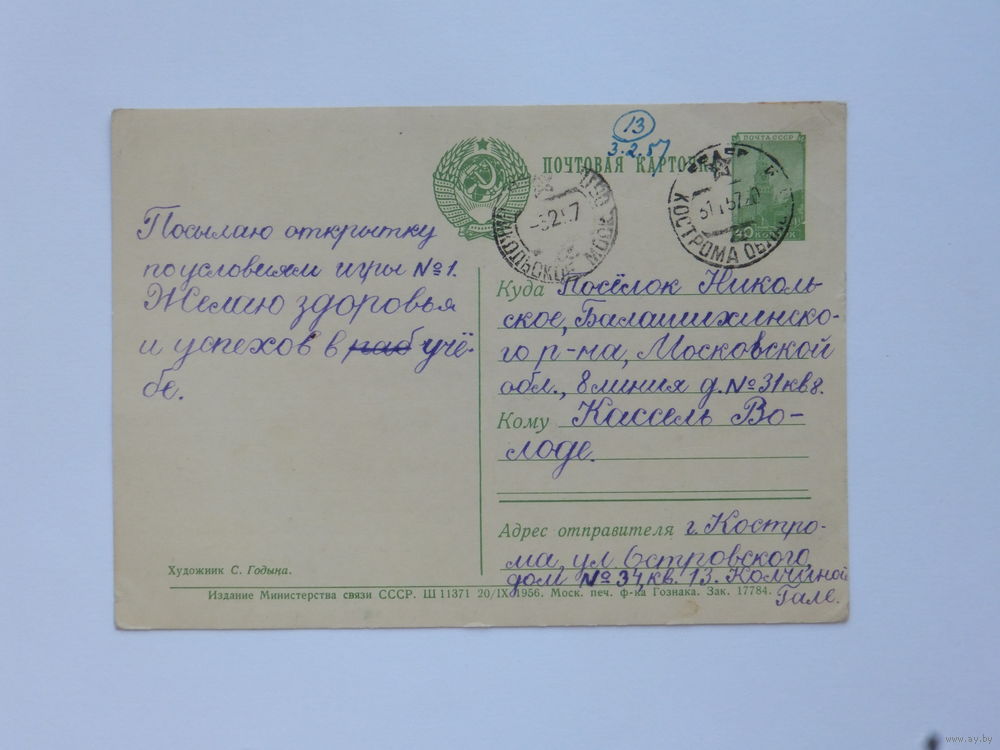 13
3.2.57
ПОЧТА СССР
40 КОПЕЕК
ПОЧТОВАЯ КАРТОЧКА
КОСТРОМА ОБЛАС
-3257
МОСК
Посылаю открытку
по условиям игры №1.
Желаю здоровья
и успехов в раб учё-
бе.
Куда Посёлок Николь-
ское, Балашихинско-
го р-на, Московской
обл., 8 линия д. № 31 кв 8.
Кому Кассель Во-
лоде.
Адрес отправителя г. Костро-
ма, ул Островского,
дом № 34, кв. 13. Колчиной
Гале.
Художник С. Годына.
Издание Министерства связи СССР. Ш 11371 20/IX 1956. Моск. печ. ф-ка Гознака. Зак. 17784.
www.ay.by